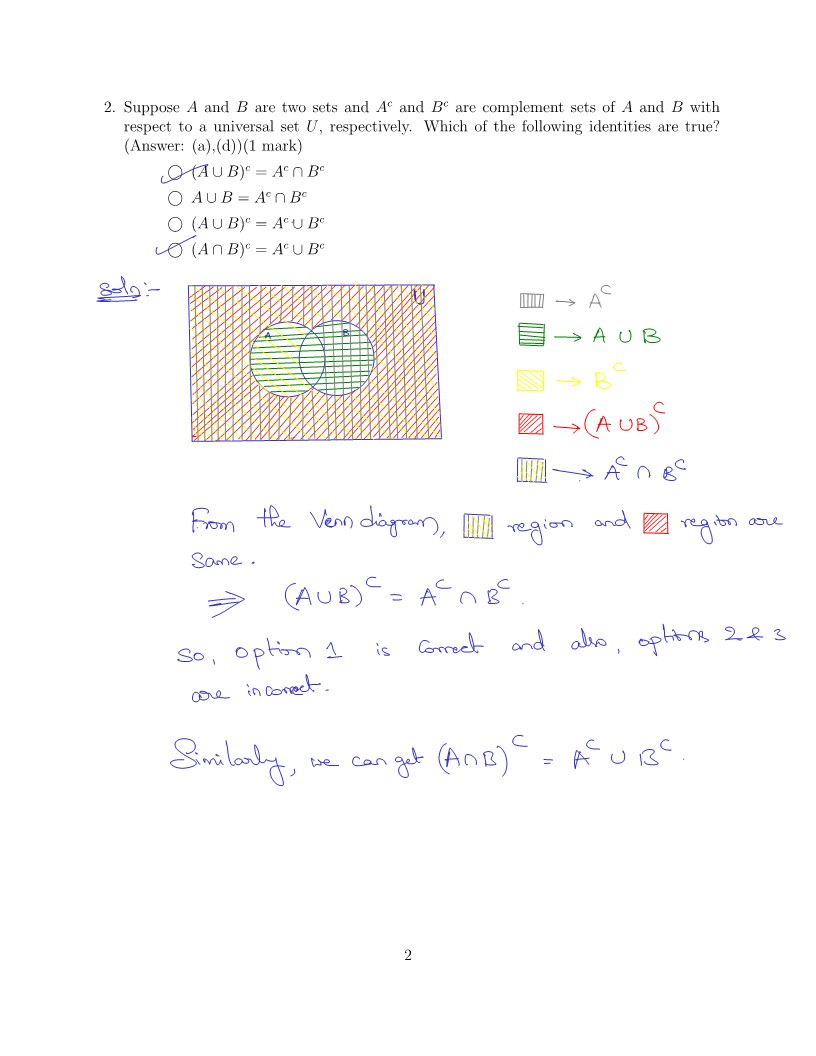 2. Suppose A and B are two sets and Aᶜ and Bᶜ are complement sets of A and B with
respect to a universal set U, respectively. Which of the following identities are true?
(Answer: (a),(d))(1 mark)
(A ∪ B)ᶜ = Aᶜ ∩ Bᶜ
A ∪ B = Aᶜ ∩ Bᶜ
(A ∪ B)ᶜ = Aᶜ ∪ Bᶜ
(A ∩ B)ᶜ = Aᶜ ∪ Bᶜ
Soln:-
U
A B
→ Aᶜ
→ A ∪ B
→ Bᶜ
→ (A ∪ B)ᶜ
→ Aᶜ ∩ Bᶜ
From the Venn diagram, region and region are
Same.
⇒ (A ∪ B)ᶜ = Aᶜ ∩ Bᶜ.
So, option 1 is correct and also, options 2 & 3
are incorrect.
Similarly, we can get (A ∩ B)ᶜ = Aᶜ ∪ Bᶜ.
2